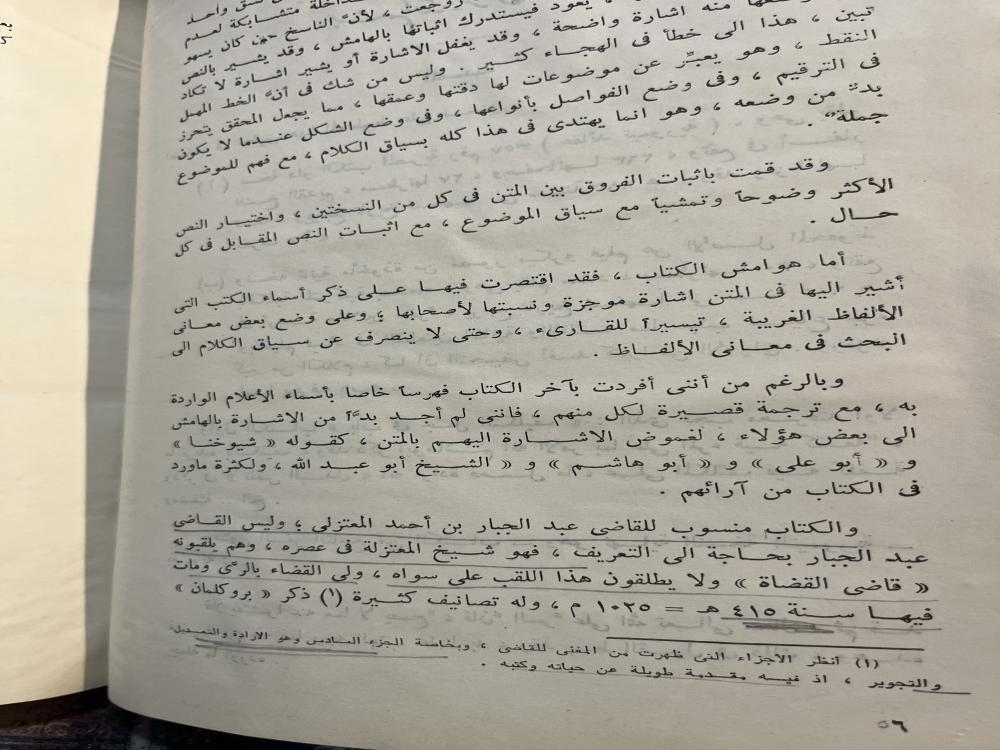 متشابكة لعدم
روجعت ، لأن الناسخ حين كان يسهو
يعود فيستدرك اثباتها بالهامش ، وقد يشير بالنص
منه اشارة واضحة ، وقد يغفل الاشارة أو يشير اشارة لا تكاد
تبين ، هذا الى خطأ فى الهجاء كثير . وليس من شك فى أنَّ الخط المهمل
النقط ، وهو يعبِّر عن موضوعات لها دقتها وعمقها ، مما يجعل المحقق يتحرز
فى الترقيم ، وفى وضع الفواصل بأنواعها ، وفى وضع الشكل عندما لا يكون
بدٌّ من وضعه ، وهو انما يهتدى فى هذا كله بسياق الكلام ، مع فهم للموضوع
جملةً .
وقد قمت باثبات الفروق بين المتن فى كل من النسختين ، واختيار النص
الأكثر وضوحاً وتمشياً مع سياق الموضوع ، مع اثبات النص المقابل فى كل
حال .
أما هوامش الكتاب ، فقد اقتصرت فيها على ذكر أسماء الكتب التى
أشير اليها فى المتن اشارة موجزة ونسبتها لأصحابها ؛ وعلى وضع بعض معانى
الألفاظ الغريبة ، تيسيراً للقارىء ، وحتى لا ينصرف عن سياق الكلام الى
البحث فى معانى الألفاظ .
وبالرغم من أننى أفردت بآخر الكتاب فهرساً خاصا بأسماء الأعلام الواردة
به ، مع ترجمة قصيرة لكل منهم ، فاننى لم أجد بدَّاً من الاشارة بالهامش
الى بعض هؤلاء ، لغموض الاشارة اليهم بالمتن ، كقوله « شيوخنا »
و « أبو على » و « أبو هاشم » و « الشيخ أبو عبد الله ، ولكثرة ماورد
فى الكتاب من آرائهم .
والكتاب منسوب للقاضى عبد الجبار بن أحمد المعتزلى ؛ وليس القاضى
عبد الجبار بحاجة الى التعريف ، فهو شيخ المعتزلة فى عصره ، وهم يلقبونه
« قاضى القضاة » ولا يطلقون هذا اللقب على سواه ، ولى القضاء بالرى ومات
فيها سنة ٤١٥ هـ = ١٠٢٥ م ، وله تصانيف كثيرة (١) ذكر « بروكلمان »
(١) أنظر الأجزاء التى ظهرت من المغنى للقاضى ، وبخاصة الجزء السادس وهو الارادة والتعديل
والتجوير ، اذ فيه مقدمة طويلة عن حياته وكتبه .
٥٦